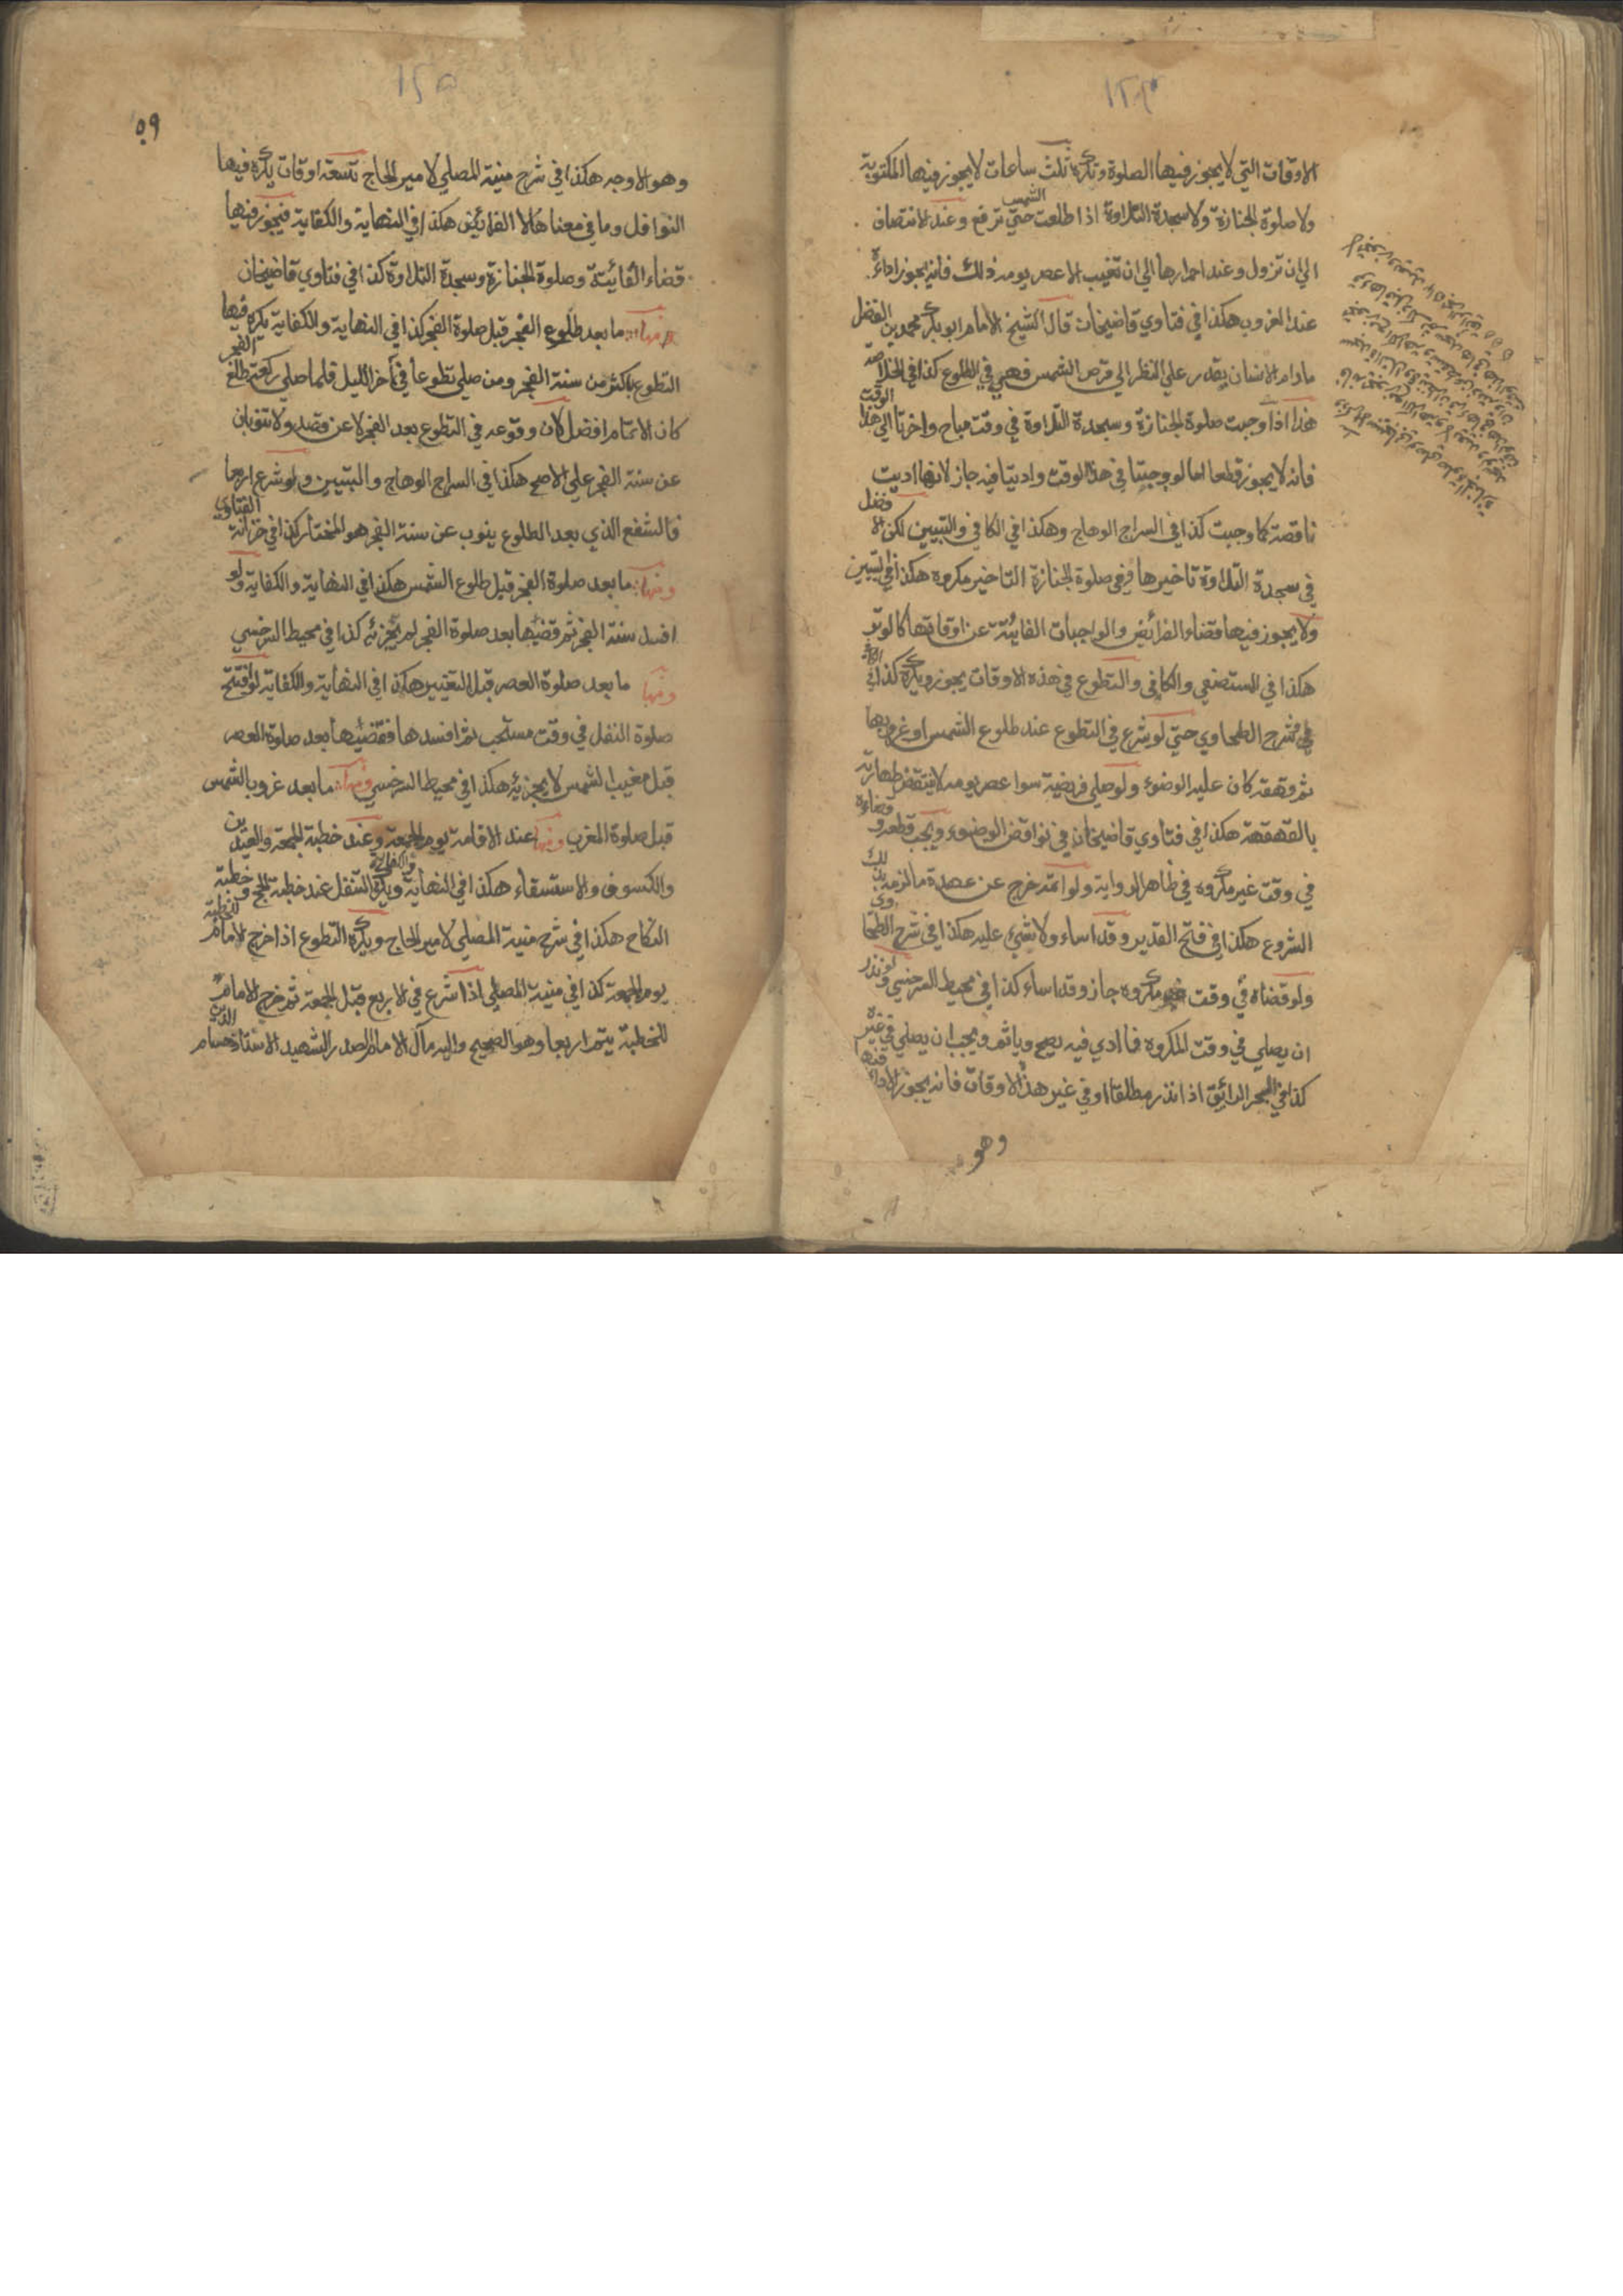 الاوقات التي لا يجوز فيها الصلوة وتكره ثلث ساعات لا يجوز فيها المكتوبة
ولا صلوة الجنازة ولا سجدة التلاوة اذا طلعت الشمس حتي ترفع وعند الانتصاف
الي ان تزول وعند احمرارها الي ان تغيب الا عصر يومه ذلك فانه يجوز اداءه
عند الغروب هكذا في فتاوي قاضيخان قال الشيخ الامام ابو بكر محمد بن الفضل
مادام الانسان يقدر علي النظر الي قرص الشمس فهي في الطلوع كذا في الخلاصه
هذا اذا وجبت صلوة الجنازة وسجدة التلاوة في وقت مباح واخرتا الي هذا الوقت
فانه لا يجوز قطعا اما لو وجبتا في هذا الوقت واديتا فيه جاز لانها اديت
ناقصة كما وجبت كذا في السراج الوهاج وهكذا في الكافي والتبيين لكن الافضل
في سجدة التلاوة تاخيرها وفي صلوة الجنازة التاخير مكروه هكذا في التبيين
ولا يجوز فيها قضاء الفرائض والواجبات الفائتة عن اوقاتها كالوتر
هكذا في المستصفي والكافي والتطوع في هذه الاوقات يجوز ويكره كذا في الكافي
في شرح الطحاوي حتي لو شرع في التطوع عند طلوع الشمس او غروبها
ثم قهقه كان عليه الوضوء ولو صلي فريضة سوا عصر يومه لا ينتقض طهارته
بالقهقهة هكذا في فتاوي قاضيخان في نواقض الوضوء ويجب قطعه وقضاءه
في وقت غير مكروه في ظاهر الرواية ولو اتمه خرج عن عهدة مالزمه بذلك
الشروع هكذا في فتح القدير وقد اساء ولا شيء عليه هكذا في شرح الطحاوي
ولو قضاه في وقت مكروه جاز وقد اساء كذا في محيط السرخسي ولو نذر
ان يصلي في وقت المكروه فادي فيه يصح وياثم ويجب ان يصلي في غيره
كذا في البحر الرائق اذا نذر مطلقا او في غير هذه الاوقات فانه يجوز الاداء فيها
وهو
٥٩
وهو الاوجه هكذا في شرح منية المصلي لامير الحاج تسعة اوقات يكره فيها
النوافل وما في معناها لا الفرائض هكذا في النهاية والكفاية فيجوز فيها
قضاء الفائتة وصلوة الجنازة وسجدة التلاوة كذا في فتاوي قاضيخان
منها ما بعد طلوع الفجر قبل صلوة الفجر كذا في النهاية والكفاية يكره فيها
التطوع باكثر من سنة الفجر ومن صلي تطوعا في آخر الليل فلما صلي ركعة طلع الفجر
كان الاتمام افضل لان وقوعه في التطوع بعد الفجر لا عن قصد ولا تنوبان
عن سنة الفجر علي الاصح هكذا في السراج الوهاج والتبيين ولو شرع اربعا
فالشفع الذي بعد الطلوع ينوب عن سنة الفجر هو المختار كذا في خزانة الفتاوي
ومنها ما بعد صلوة الفجر قبل طلوع الشمس هكذا في النهاية والكفاية ولو
افسد سنة الفجر ثم قضيها بعد صلوة الفجر لم يجزئه كذا في محيط السرخسي
ومنها ما بعد صلوة العصر قبل التغيير هكذا في النهاية والكفاية لو افتتح
صلوة النفل في وقت مستحب ثم افسدها فقضيها بعد صلوة العصر
قبل مغيب الشمس لا يجزئه هكذا في محيط السرخسي ومنها ما بعد غروب الشمس
قبل صلوة المغرب ومنها عند الاقامة يوم الجمعة وعند خطبة الجمعة والعيدين
والكسوف والاستسقاء هكذا في النهاية والكفاية ويكره التنفل عند خطبة الحج وخطبة
النكاح هكذا في شرح منية المصلي لامير الحاج ويكره التطوع اذا خرج الامام للخطبة
يوم الجمعة كذا في منية المصلي اذا شرع في الاربع قبل الجمعة ثم خرج الامام
للخطبة يتم اربعا وهو الصحيح واليه مال الامام الصدر الشهيد الاستاذ حسام الدين